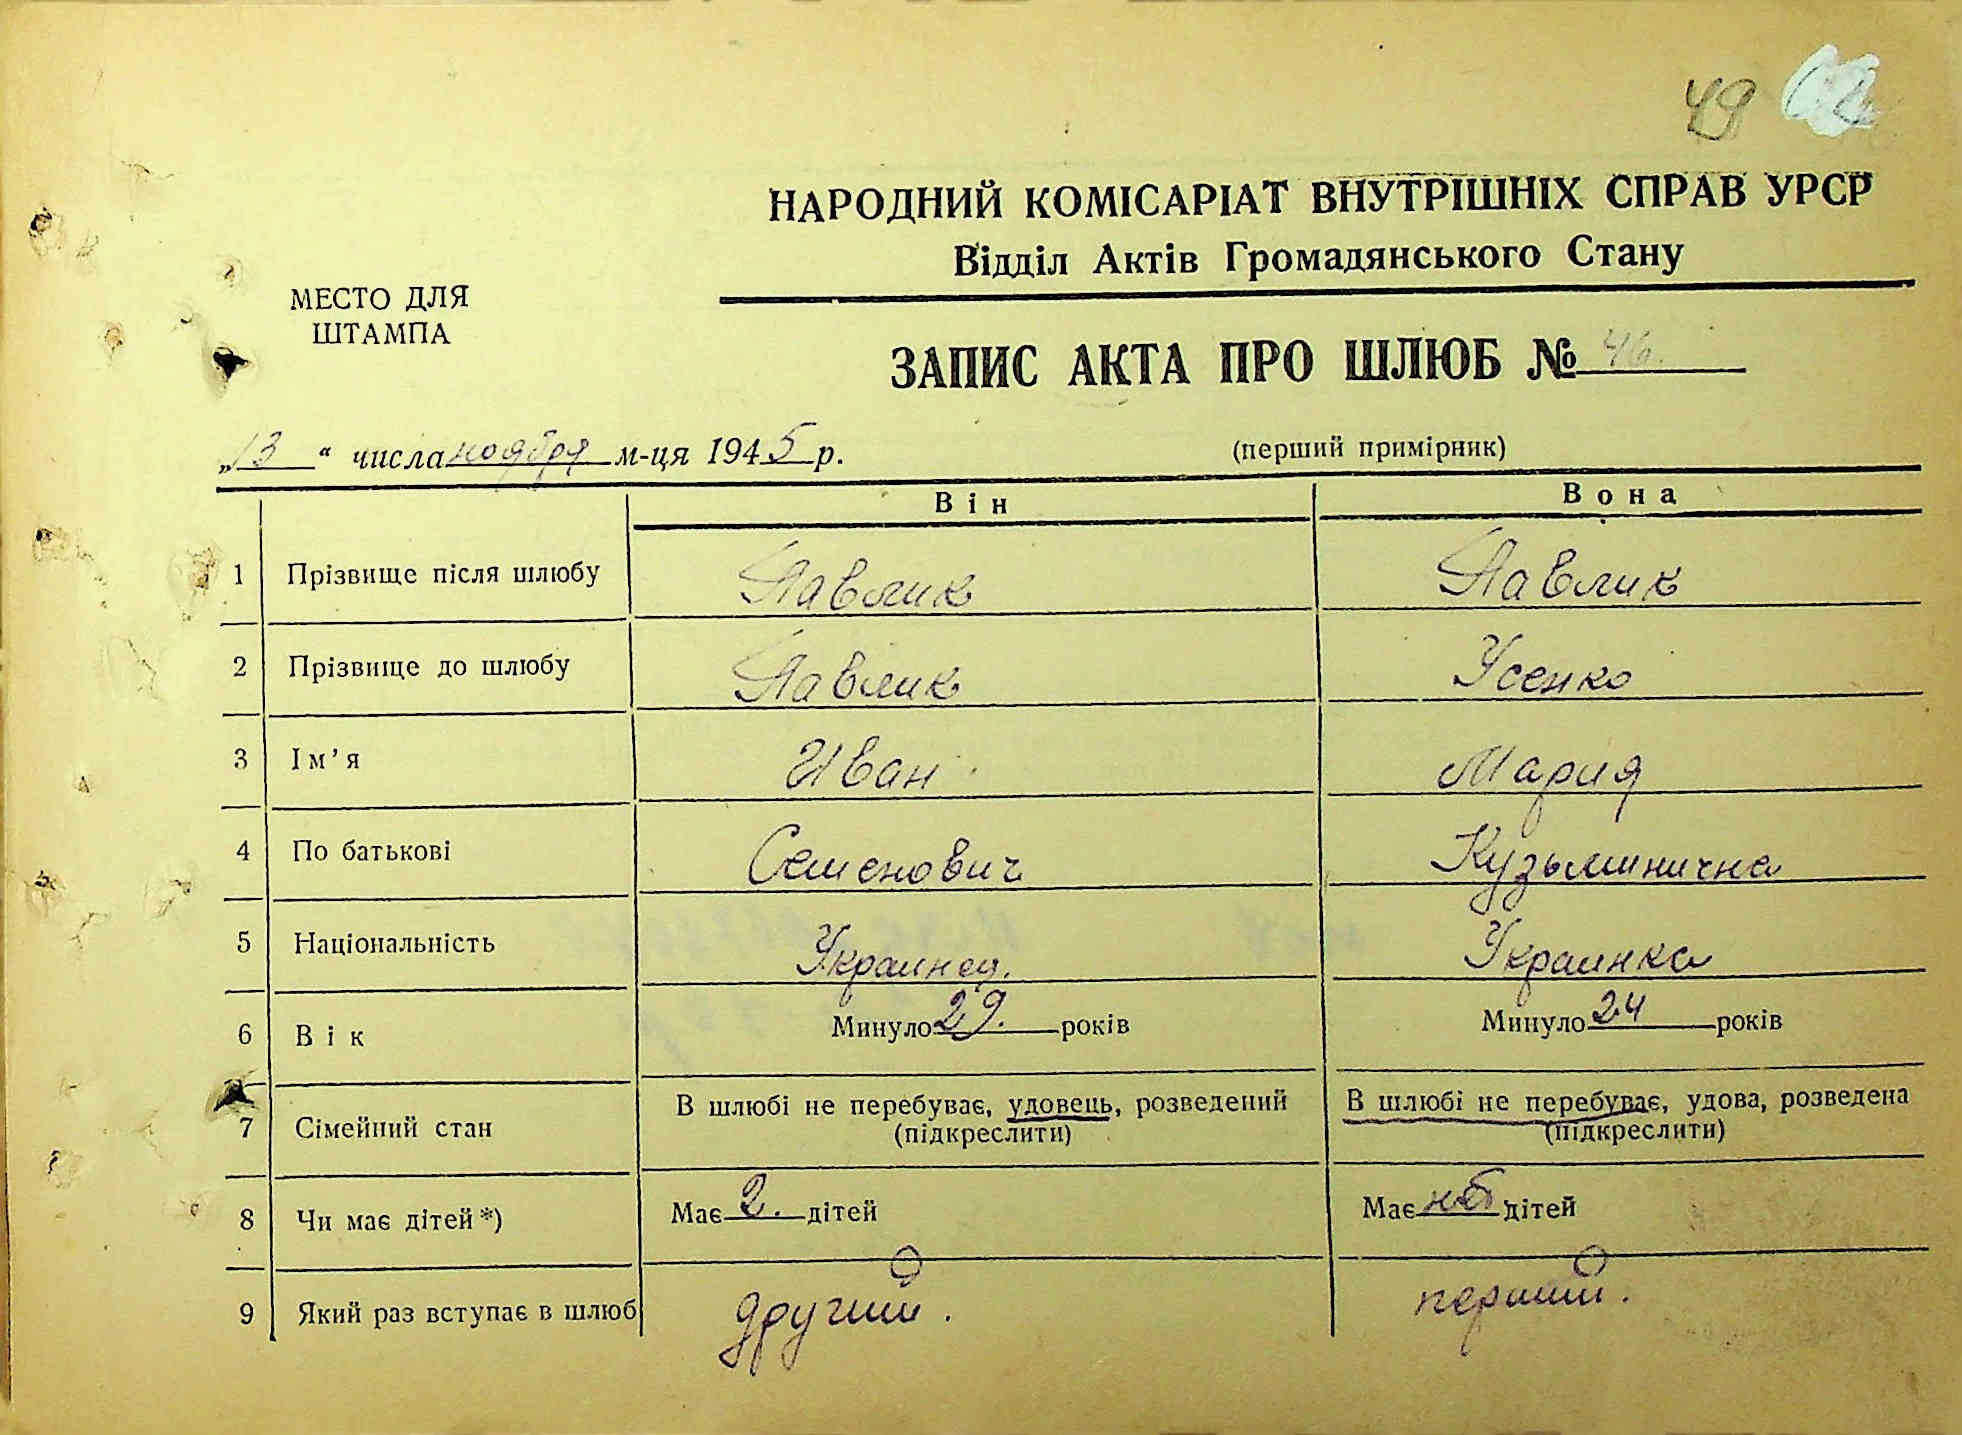 49
НАРОДНИЙ КОМІСАРІАТ ВНУТРІШНІХ СПРАВ УРСР
Відділ Актів Громадянського Стану
МЕСТО ДЛЯ
ШТАМПА
ЗАПИС АКТА ПРО ШЛЮБ № 46.
„13“ числа ноября м-ця 1945 р.
(перший примірник)
Він Вона
1 Прізвище після шлюбу Павлик Павлик
2 Прізвище до шлюбу Павлик Усенко
3 Ім’я Иван Мария
4 По батькові Семенович Кузьминична
5 Національність Украинец. Украинка
6 Вік Минуло 29. років Минуло 24 років
7 Сімейний стан В шлюбі не перебуває, удовець, розведений В шлюбі не перебуває, удова, розведена
(підкреслити) (підкреслити)
8 Чи має дітей*) Має 2. дітей Має дітей
9 Який раз вступає в шлюб другий. перший.